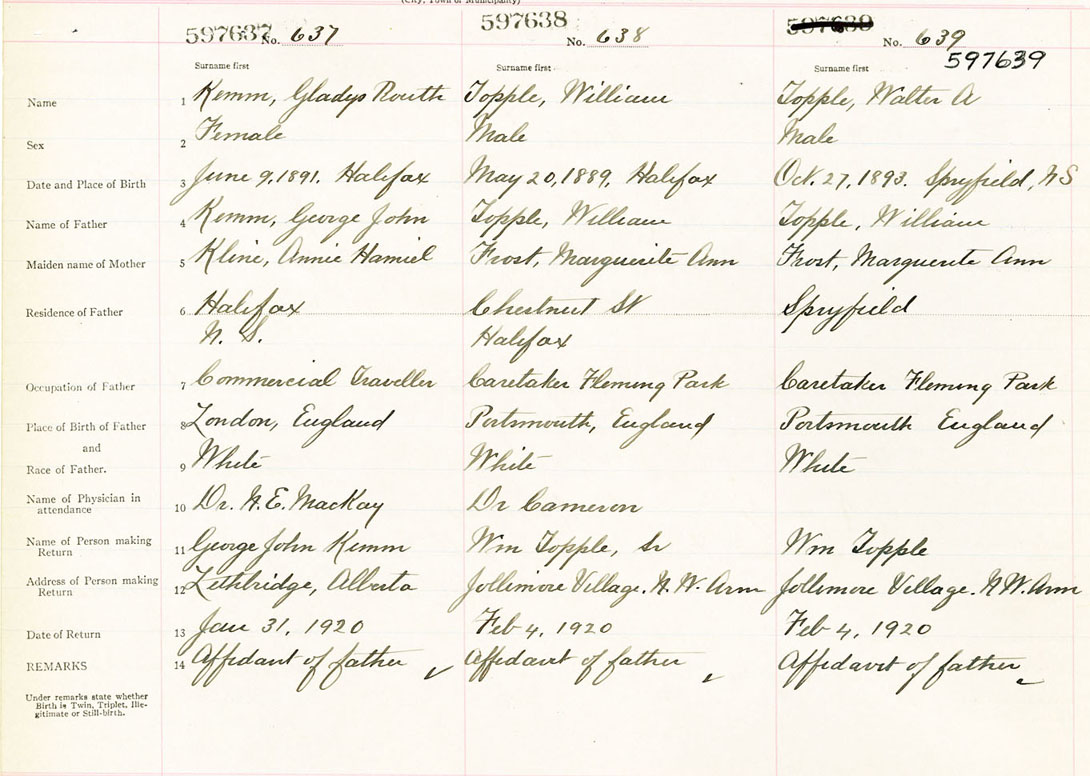 (City, Town or Municipality)
597637 No. 637 597638 No. 638 597639 No. 639
597639
Surname first Surname first Surname first
Name 1 Kemm, Gladys Routh Topple, William Topple, Walter A
Sex 2 Female Male Male
Date and Place of Birth 3 June 9, 1891. Halifax May 20, 1889, Halifax Oct. 27, 1893. Spryfield, NS
Name of Father 4 Kemm, George John Topple, William Topple, William
Maiden name of Mother 5 Kline, Annie Hamiel Frost, Marguerite Ann Frost, Marguerite Ann
Residence of Father 6 Halifax Chestnut St Spryfield
N. S. Halifax
Occupation of Father 7 Commercial Traveller Caretaker Fleming Park Caretaker Fleming Park
Place of Birth of Father 8 London, England Portsmouth, England Portsmouth England
and
Race of Father. 9 White White White
Name of Physician in
attendance 10 Dr. N. E. MacKay Dr Cameron
Name of Person making
Return 11 George John Kemm Wm Topple, Sr Wm Topple
Address of Person making
Return 12 Lethbridge, Alberta Jollimore Village. N. W. Arm Jollimore Village. N W. Arm
Date of Return 13 Jan 31, 1920 Feb 4, 1920 Feb 4, 1920
REMARKS 14 Affidavit of father Affidavit of father Affidavit of father
Under remarks state whether
Birth is Twin, Triplet, Ille-
gitimate or Still-birth.